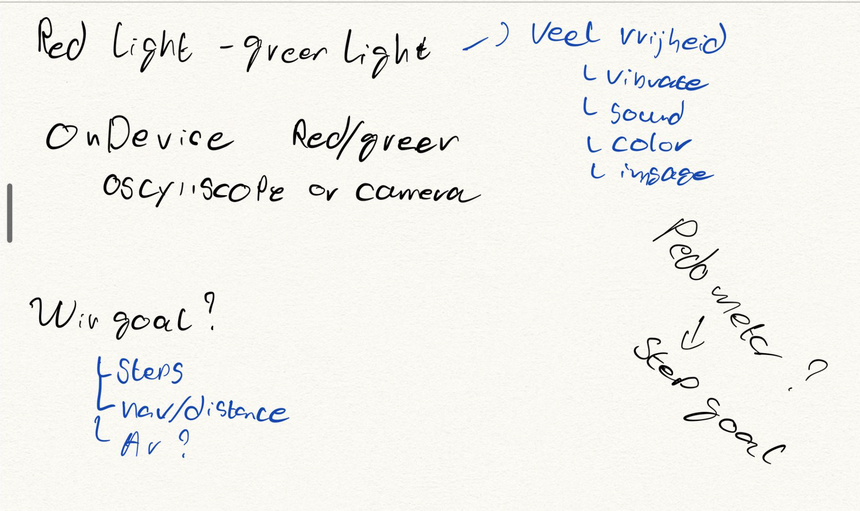 Red Light - green Light
Veel vrijheid
vibrate
sound
color
imsage
OnDevice Red/green
oscyliscope or camera
Pedo meter ?
↓
Step goal
Win goal?
Steps
nav/distance
Ar ?